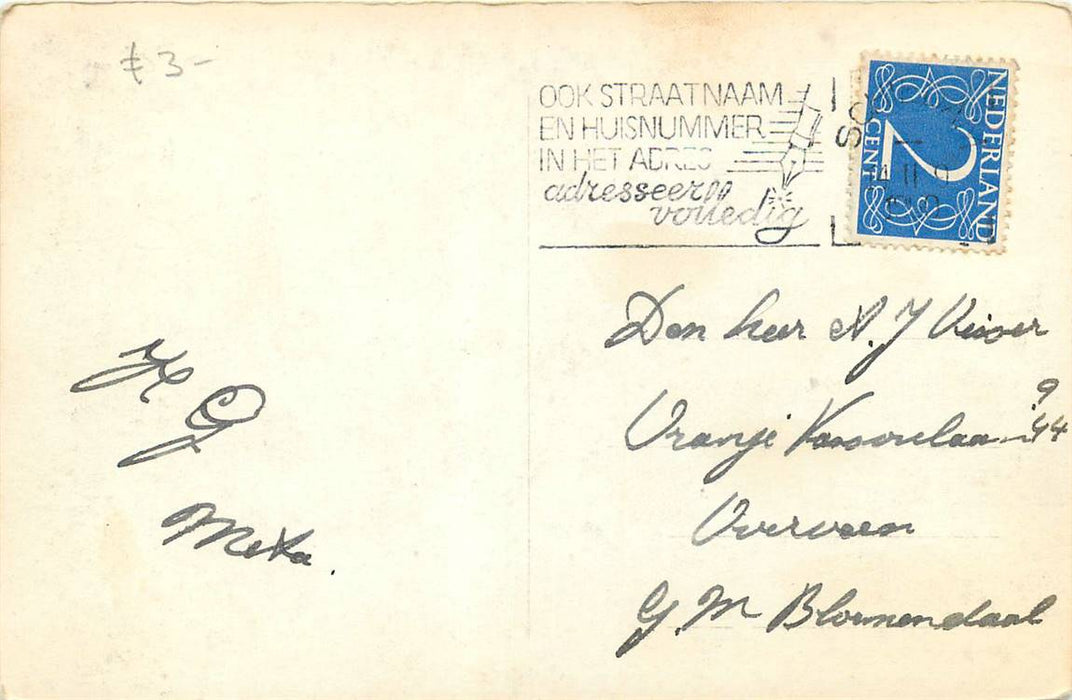 € 3-
OOK STRAATNAAM
EN HUISNUMMER
IN HET ADRES
adresseer
volledig
NEDERLAND
2
CENT
Den heer A. J Visser
Oranje 44
9
Overveen
G. M Bloemendaal
H
G
Meta.